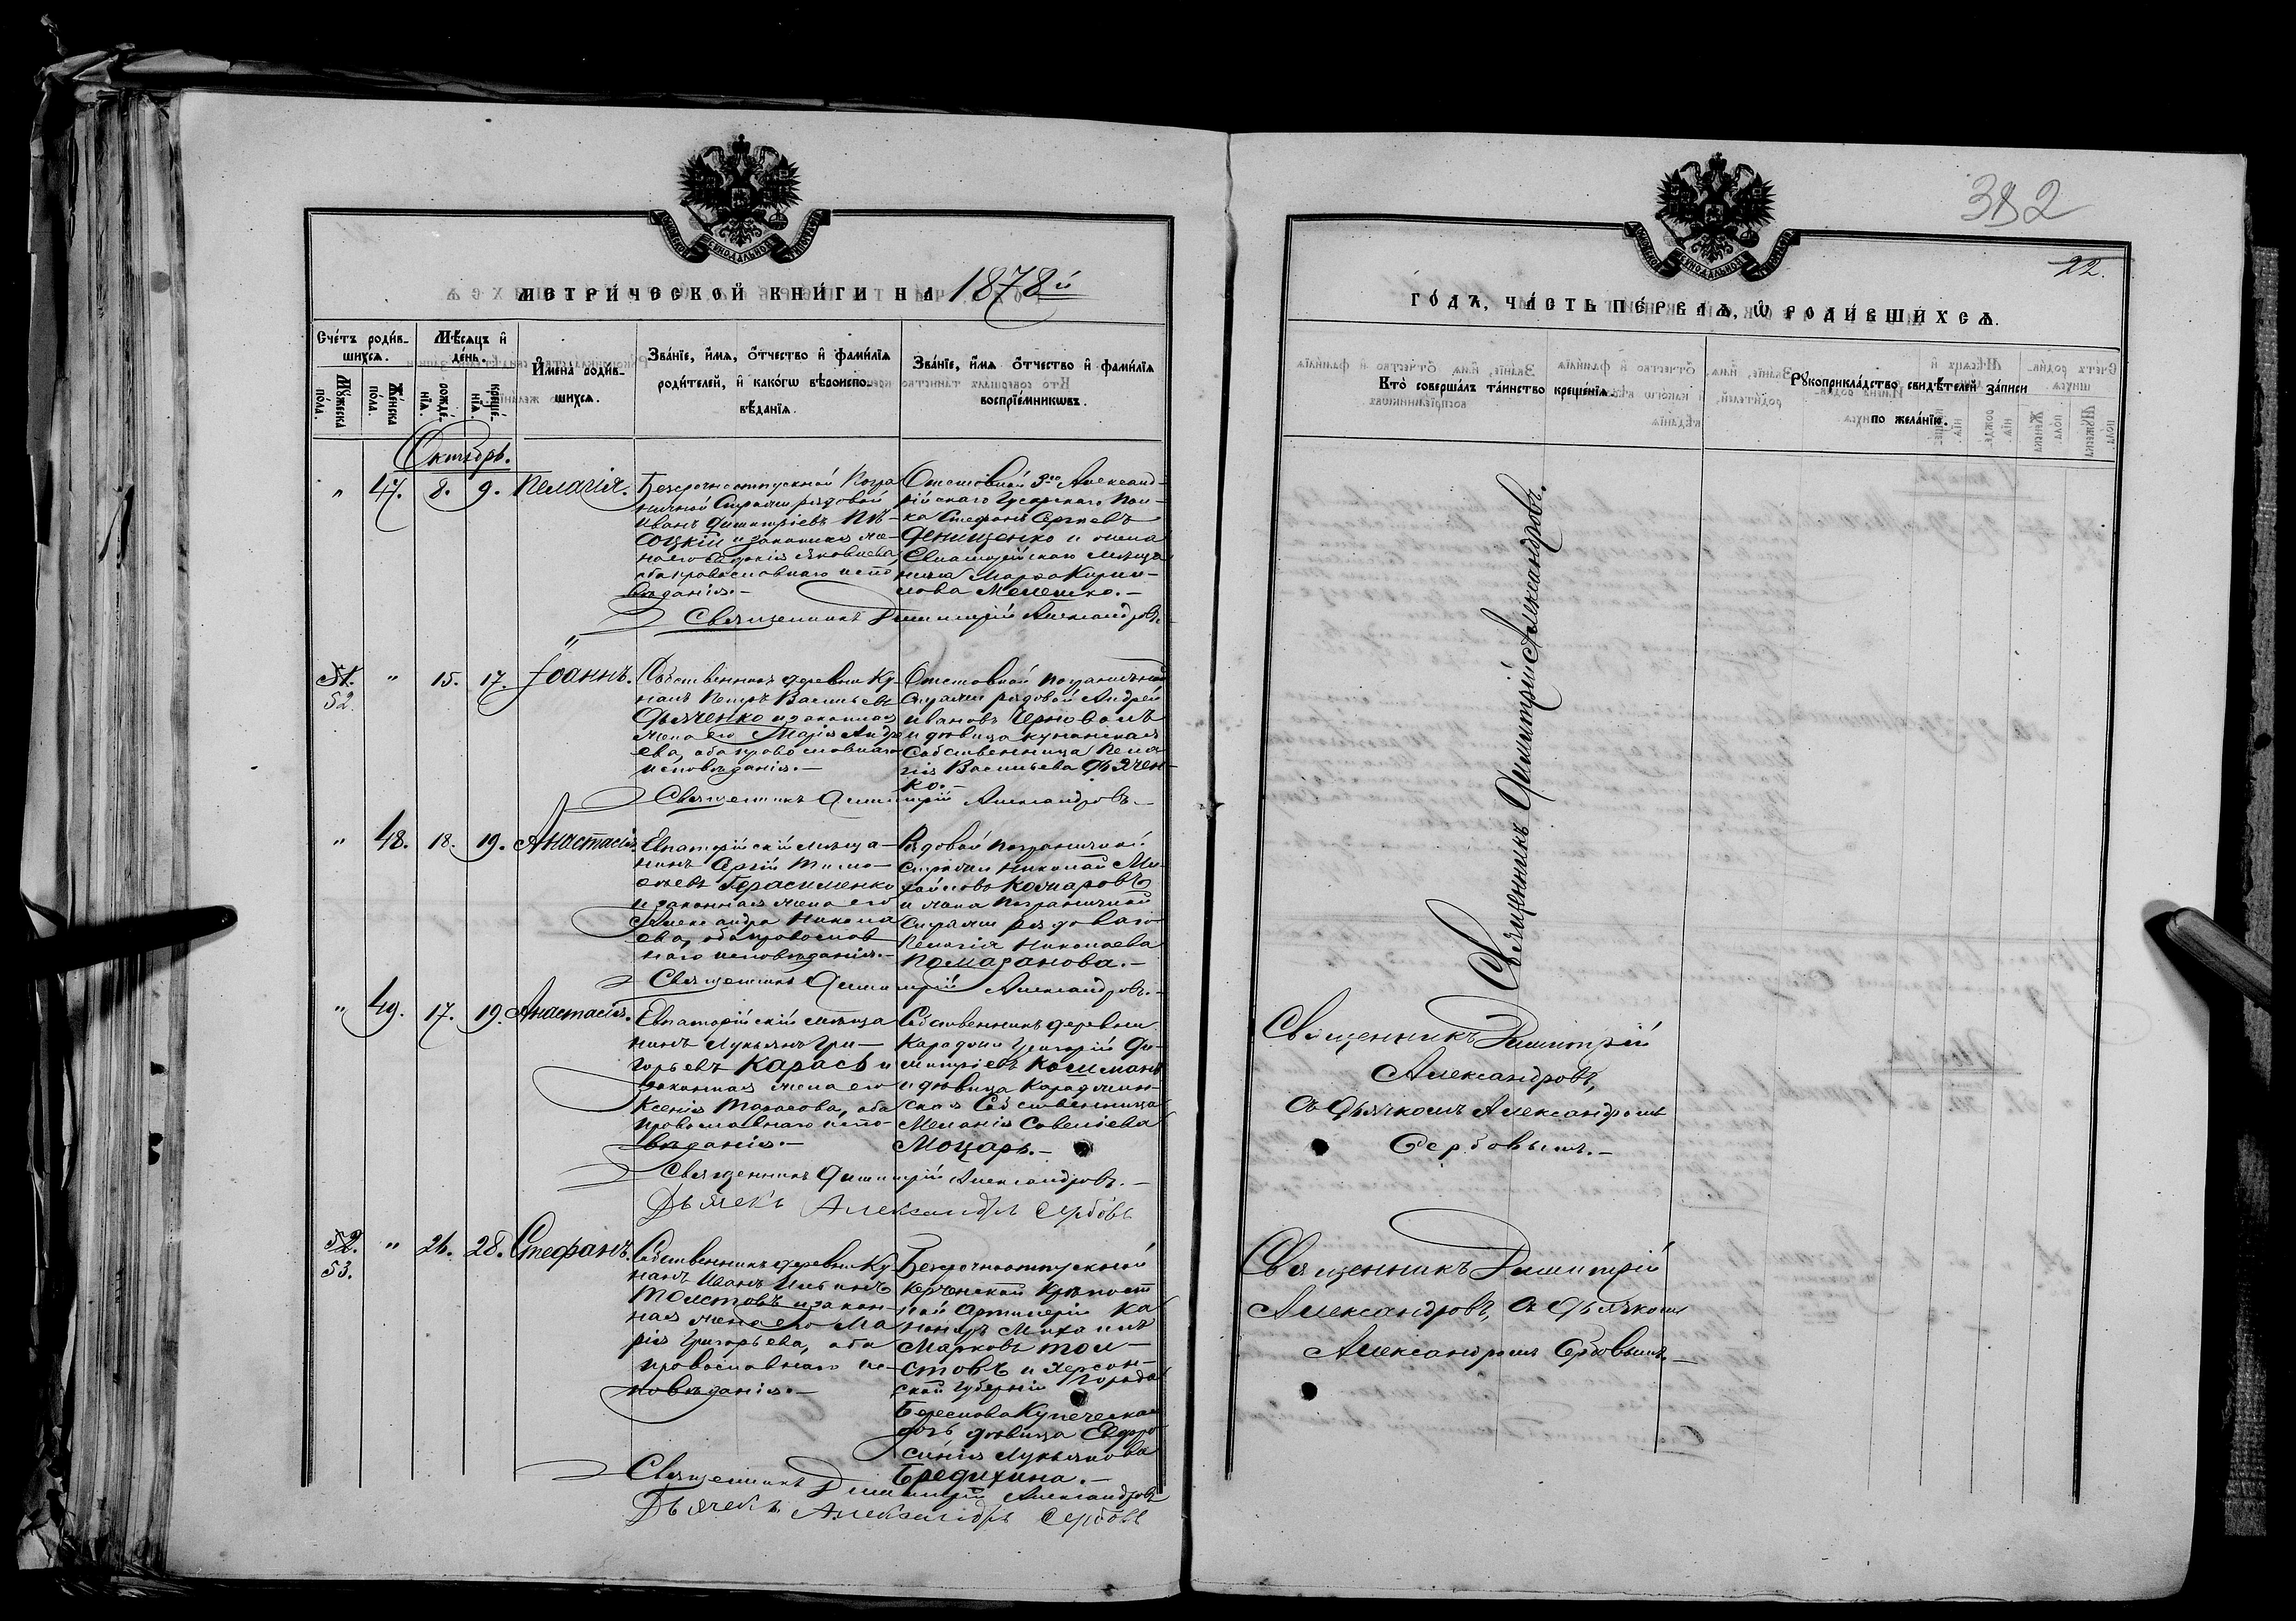 МЕТРИ́ЧЕСКОЙ КНИ́ГИ НА 1878й
Сче́тъ роди́в-
шихсѧ.
Мѣ́сѧцъ и҆
де́нь.
Мꙋ́жеска
по́ла.
Же́нска
по́ла.
рожде́-
нїѧ.
креще́-
нїѧ.
И҆мена̀ роди́в-
шихсѧ.
Зва́нїе, и҆́мѧ, ѻ҆́тчество и҆ фами́лїѧ
роди́телей, и҆ како́гѡ вѣроиспо-
вѣ́данїѧ.
Зва́нїе, и҆́мѧ ѻ҆́тчество и҆ фами́лїѧ
воспрїе́мниковъ.
Октябрь.
" 47. 8. 9. Пелагія.
Безсрочноотпускной Погра
ничной Стражи рядовой
Иванъ Димитріевъ Пѣ-
соцкій и законная же-
на его Евдокія Яковлева,
оба православнаго испо
вѣданія.-
Отставной 9го Александ-
рійскаго Гусарскаго Пол-
ка Стефанъ Сергѣевъ
Денищенко и жена
Евпаторійскаго мѣща
нина Марѳа Кирил-
лова Мелешко.-
Священникъ Димитрій Александровъ.
51. " 15. 17. Іоаннъ.
52.
Собственникъ деревни Ку-
нанъ Петръ Васильевъ
Дьяченко и законная
жена его Марія Андре
ева, оба православнаго
исповѣданія.-
Отставной Пограничной
Стражи рядовой Андрей
Ивановъ Черноволъ
и дѣвица кунанская
Собственница Пела
гія Васильева Дьячен-
ко.-
Священникъ Димитрій Александровъ.-
" 48. 18. 19. Анастасія.
Евпаторійскій мѣща-
нинъ Сергій Тимо-
ѳеевъ Герасименко
и законная жена его
Александра Никола
ева, оба православ
наго исповѣданія.-
Рядовой Пограничной
Стражи Николай Ми-
хайловъ Комаровъ
и жена Пограничной
Стражи рядоваго
Пелагія Николаева
Помаранова.-
Священникъ Димитрій Александровъ.-
" 49. 17. 19. Анастасія.
Евпаторійскій мѣща
нинъ Лукьянъ Гри-
горьевъ Карась и
законная жена его
Ксенія Тарасова, оба
православнаго испо-
вѣданія.-
Собственникъ деревни
Караджи Григорій Ди-
митріевъ Кошманъ
и дѣвица Караджин-
ская Собственница
Меланія Савельева
Моцарь.-
Священникъ Димитрій Александровъ.-
Дьячекъ Александръ Сербовъ
52. " 26. 28. Стефанъ.
53.
Собственникъ деревни Ку-
нанъ Иванъ Ильинъ
Толстовъ и закон-
ная жена его Ма
рія Григорьева, оба
православнаго ис-
повѣданія.-
Безсрочноотпускной
Керченской Крѣпост
ной Артилеріи Ка
нониръ Михаилъ
Марковъ Тол-
стовъ и Херсон-
ской Губерніи Города
Береслова Купеческая
дочь дѣвица Евфро
синія Лукьянова
Бредихина.-
Священникъ Димитрій Александровъ
Дьячекъ Александръ Сербовъ
382
22.
ГО́ДЪ, ЧА́СТЬ ПЕ́РВАѦ, Ѡ҆ РОДИ́ВШИХСѦ.
Кто̀ соверша́лъ та́инство креще́нїѧ.
Рꙋкоприкла́дство свидѣ́телей за́писи
по жела́нїю.
Священникъ Димитрій Александровъ.
Священникъ Димитрій
Александровъ,
съ Дьячкомъ Александромъ
Сербовымъ.-
Священникъ Димитрій
Александровъ, съ Дьячкомъ
Александромъ Сербовымъ.-